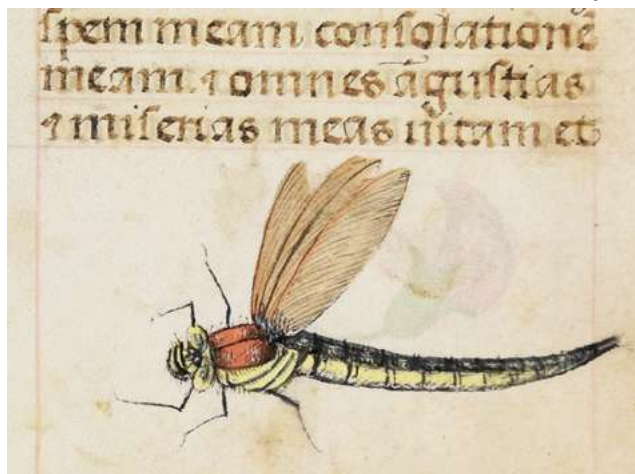 spem meam consolationē
meam. ⁊ omnes āgustias
⁊ miserias meas vitam et